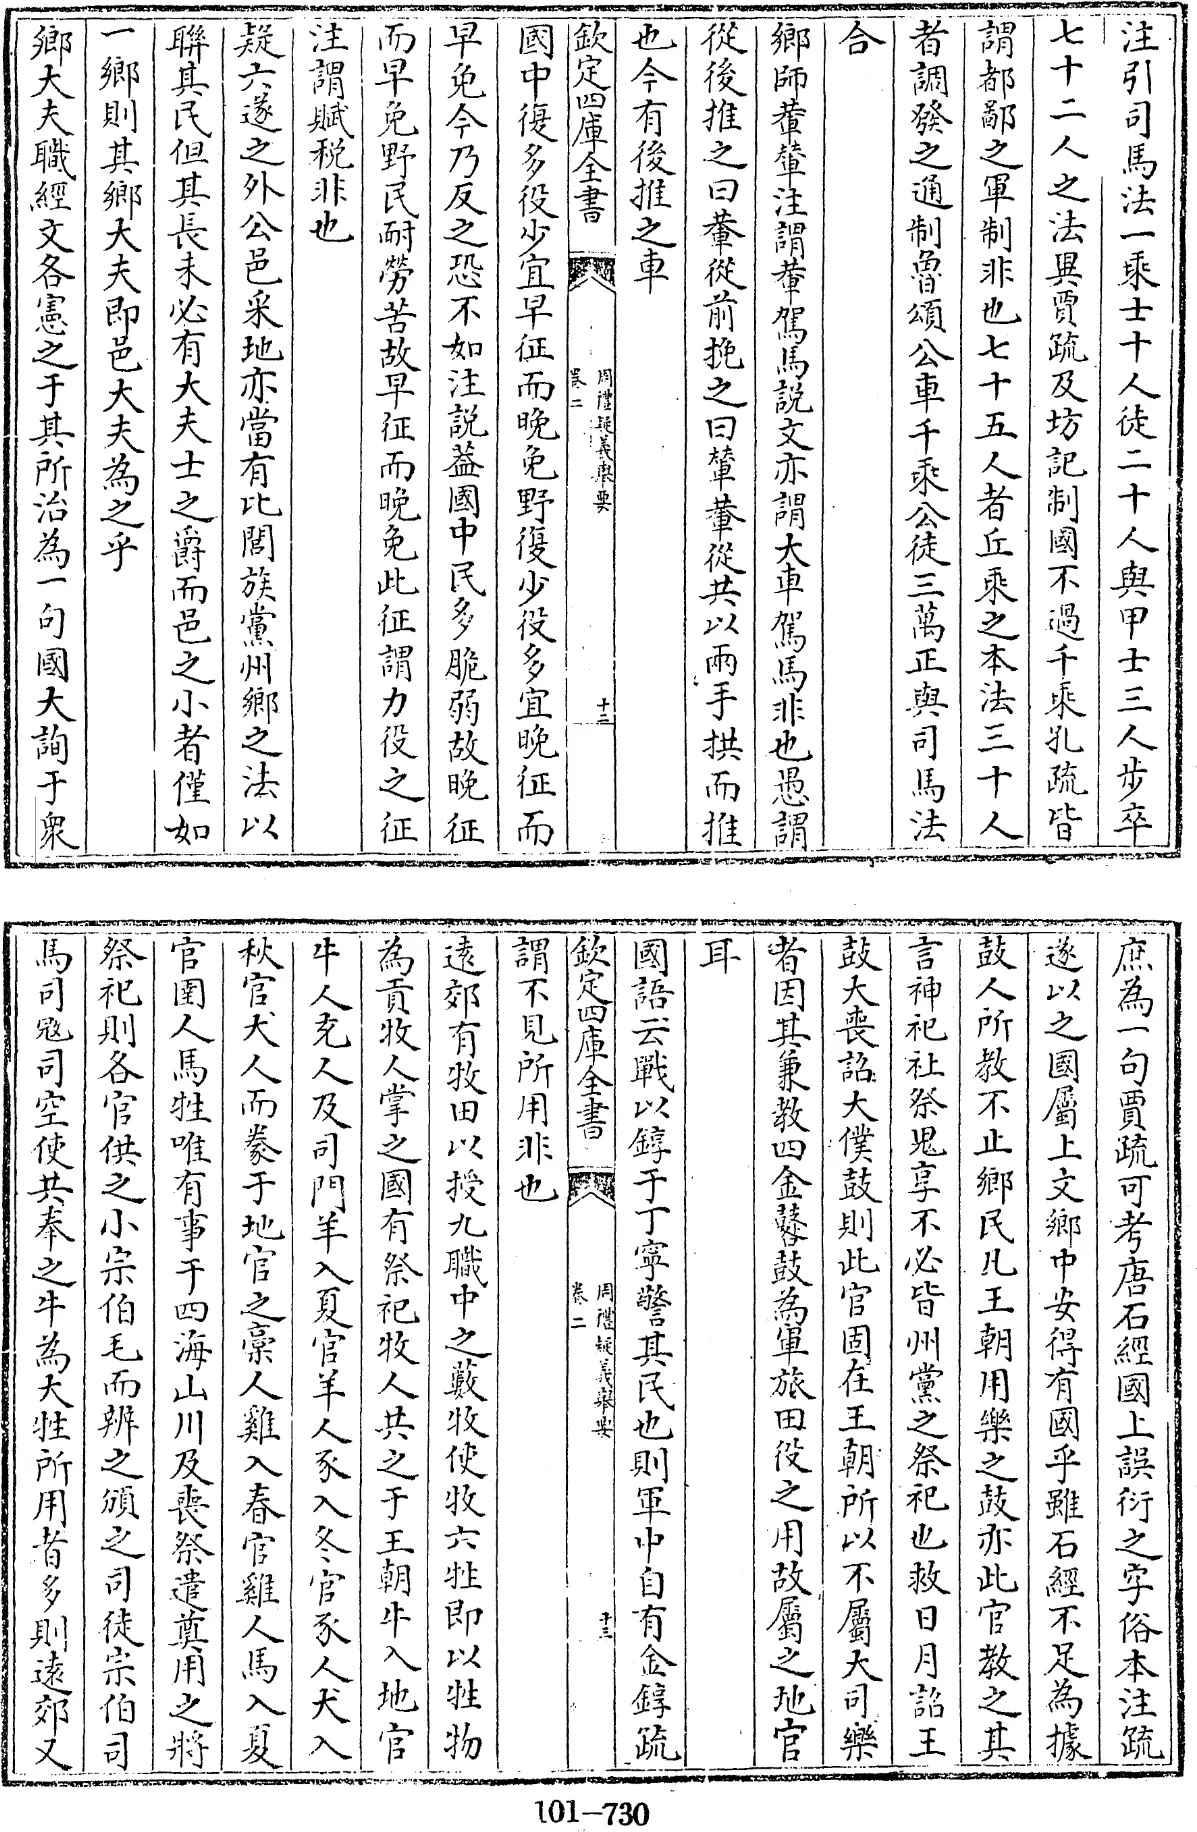 注引司馬法一乘士十人徒二十人與甲士三人步卒
七十二人之法異賈疏及坊記制國不過千乘孔疏皆
謂都鄙之軍制非也七十五人者丘乘之本法三十人
者調發之通制魯頌公車千乘公徒三萬正與司馬法
合
鄉師輂輦注謂輂駕馬説文亦謂大車駕馬非也愚謂
從後推之曰輂從前挽之曰輦輂從共以兩手拱而推
也今有後推之車
欽定四庫全書
周禮疑義舉要
卷二
十二
國中復多役少宜早征而晚免野復少役多宜晚征而
早免今乃反之恐不如注説葢國中民多脆弱故晚征
而早免野民耐勞苦故早征而晚免此征謂力役之征
注謂賦税非也
疑六遂之外公邑采地亦當有比閭族黨州鄉之法以
聯其民但其長未必有大夫士之爵而邑之小者僅如
一鄉則其鄉大夫即邑大夫為之乎
鄉大夫職經文各憲之于其所治為一句國大詢于衆
庶為一句賈疏可考唐石經國上誤衍之字俗本注疏
遂以之國屬上文鄉中安得有國乎雖石經不足為據
鼓人所教不止鄉民凡王朝用樂之鼓亦此官教之其
言神祀社祭鬼享不必皆州黨之祭祀也救日月詔王
鼓大喪詔大僕鼓則此官固在王朝所以不屬大司樂
者因其兼教四金鼛鼓為軍旅田役之用故屬之地官
耳
國語云戰以錞于丁寧警其民也則軍中自有金錞疏
欽定四庫全書
周禮疑義舉要
卷二
十三
謂不見所用非也
遠郊有牧田以授九職中之藪牧使牧六牲即以牲物
為貢牧人掌之國有祭祀牧人共之于王朝牛入地官
牛人充人及司門羊入夏官羊人豕入冬官豕人犬入
秋官犬人而豢于地官之槀人雞入春官雞人馬入夏
官圉人馬牲唯有事于四海山川及喪祭遣奠用之將
祭祀則各官供之小宗伯毛而辨之頒之司徒宗伯司
馬司冦司空使共奉之牛為大牲所用者多則遠郊又
101-730